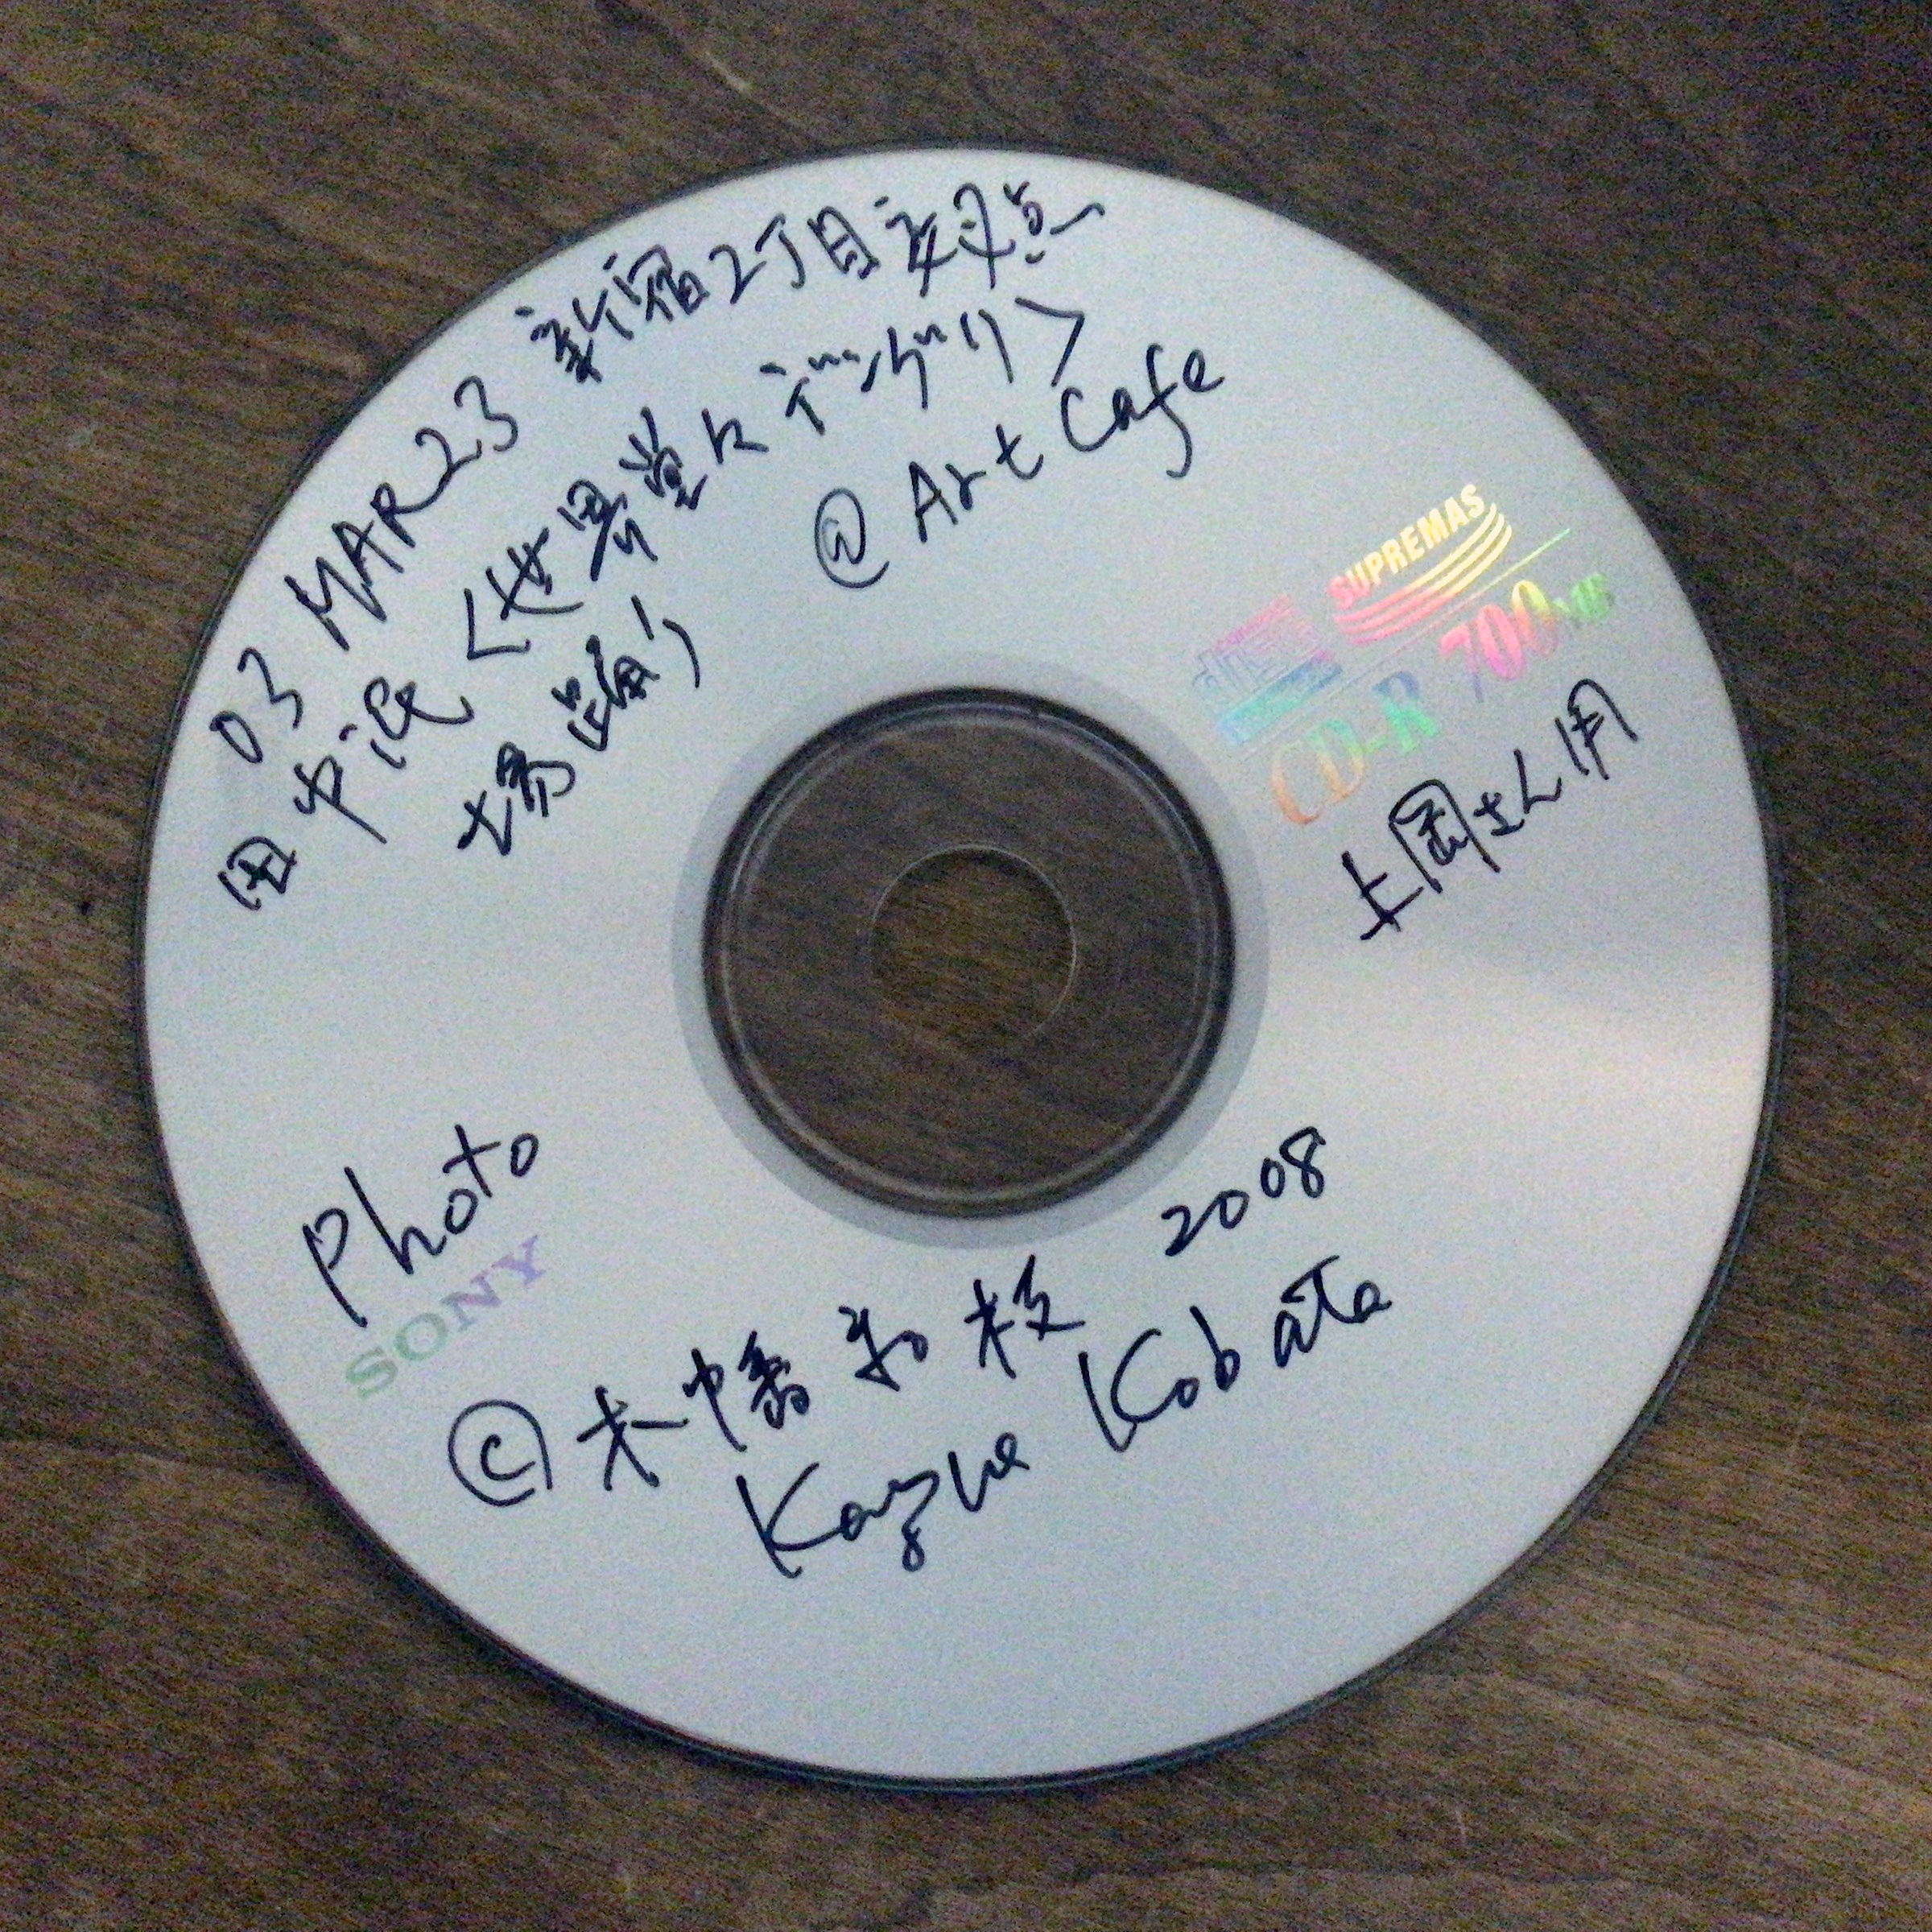 03 MAR 23 新宿2丁目交差点
田中泯〈世界堂ヒデンガリ〉
場踊り
@ Art Cafe
SUPREMAS
CD-R 700MB
上岡さん用
Photo
SONY
© 木幡和枝 2008
Kazue Kobata